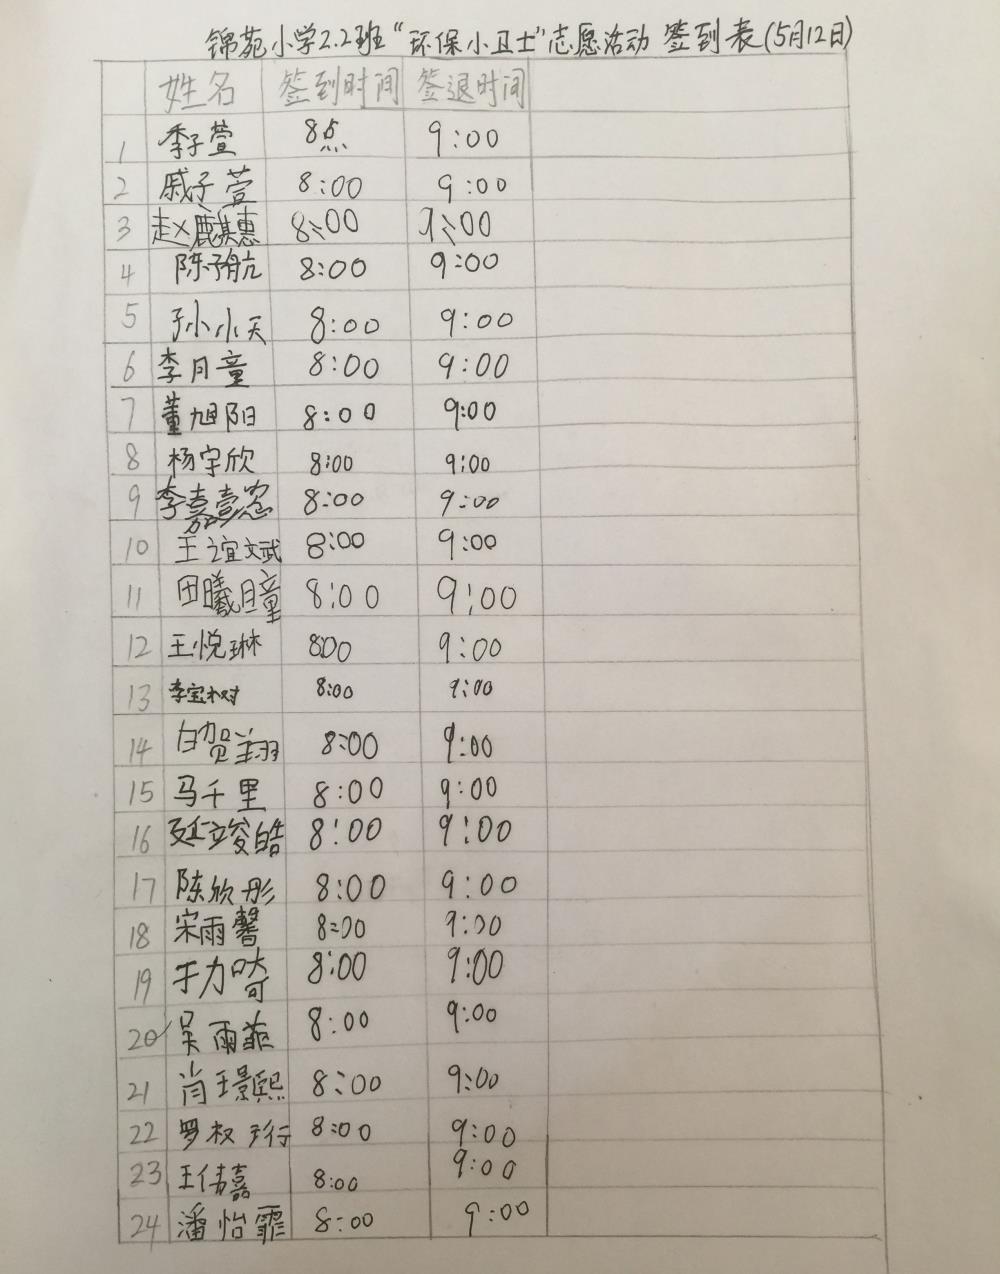 锦苑小学2.2班“环保小卫士”志愿活动 签到表(5月12日)
姓名 签到时间 签退时间
1 季子萱 8点 9:00
2 戚子萱 8:00 9:00
3 赵麒惠 8:00 9:00
4 陈子航 8:00 9:00
5 孙小天 8:00 9:00
6 李月童 8:00 9:00
7 董旭阳 8:00 9:00
8 杨宇欣 8:00 9:00
9 李嘉 8:00 9:00
10 王谊文武 8:00 9:00
11 田曦瞳 8:00 9:00
12 王悦琳 8:00 9:00
13 李宝树 8:00 9:00
14 白贺翔 8:00 9:00
15 马千里 8:00 9:00
16 竣皓 8:00 9:00
17 陈欣彤 8:00 9:00
18 宋雨馨 8:00 9:00
19 于力 8:00 9:00
20 吴雨菲 8:00 9:00
21 肖璟熙 8:00 9:00
22 罗权珩 8:00 9:00
23 王倩嘉 8:00 9:00
24 潘怡霏 8:00 9:00